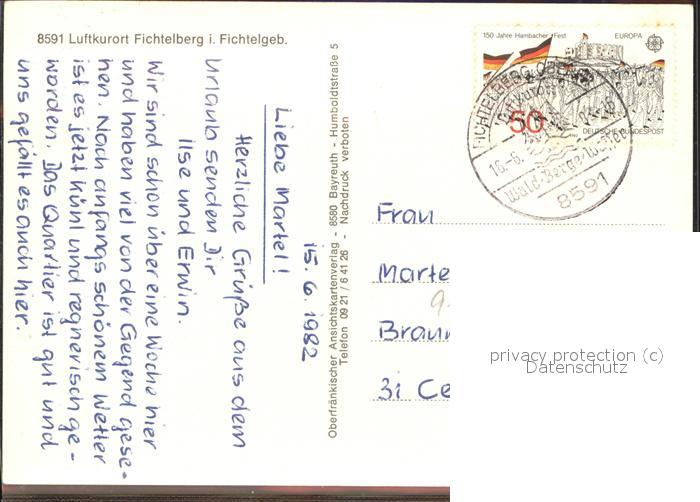 8591 Luftkurort Fichtelberg i. Fichtelgeb.
15. 6. 1982
Liebe Martel!
Herzliche Grüße aus dem
Urlaub senden Dir
Ilse und Erwin.
Wir sind schon über eine Woche hier
und haben viel von der Gegend gese-
hen. Nach anfangs schönem Wetter
ist es jetzt kühl und regnerisch ge-
worden. Das Quartier ist gut und
uns gefällt es auch hier.
Oberfränkischer Ansichtskartenverlag - 8580 Bayreuth - Humboldtstraße 5
Telefon 09 21 / 6 41 26 - Nachdruck verboten
150 Jahre Hambacher Fest
EUROPA
50
DEUTSCHE BUNDESPOST
FICHTELBERG
16.-6.
8591
Frau
Marte
Braun
31 Ce
privacy protection (c)
Datenschutz